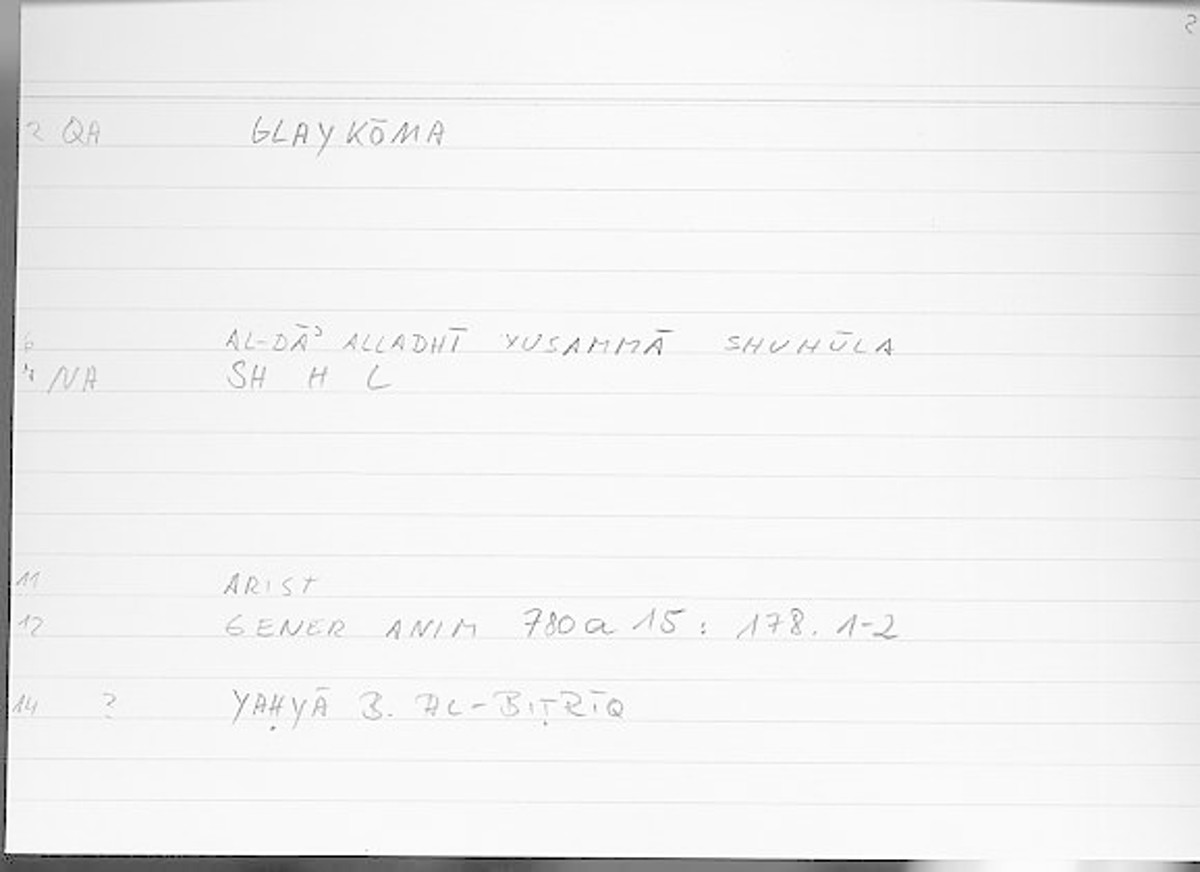 2
2 QA GLAYKŌMA
6 AL-DĀʾ ALLADHĪ YUSAMMĀ SHUHŪLA
7 NA SH H L
11 ARIST
12 GENER ANIM 780a 15: 178. 1-2
14 ? YAḤYĀ B. AL-BIṬRĪQ